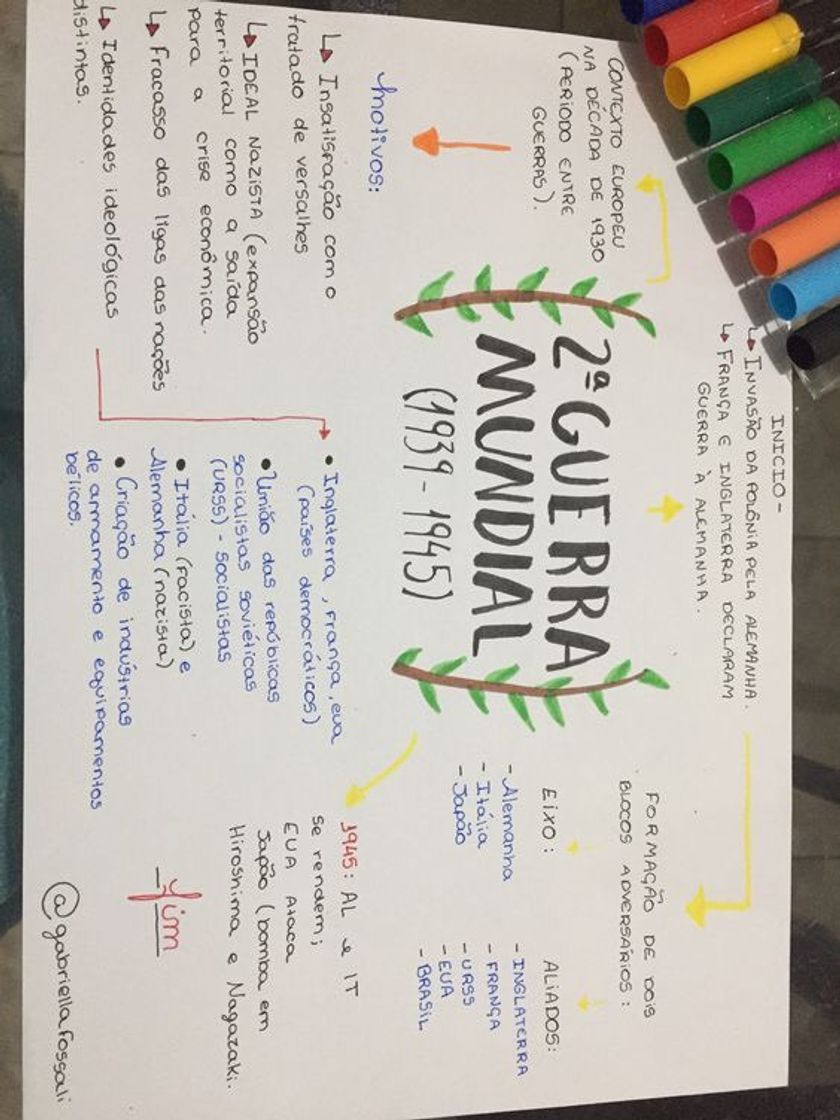 2ª GUERRA
MUNDIAL
(1939 - 1945)
CONTEXTO EUROPEU
NA DÉCADA DE 1930
(PERÍODO ENTRE
GUERRAS).
motivos:
↳ Insatisfação com o
tratado de versalhes
↳ IDEAL NAZISTA (expansão
territorial como a saída
para a crise econômica.
↳ Fracasso das ligas das nações
↳ Identidades ideológicas
distintas.
• Inglaterra, França, eua
(países democráticos)
• União das repúblicas
socialistas soviéticas
(URSS) - socialistas
• Itália (facista) e
Alemanha (nazista)
• Criação de indústrias
de armamento e equipamentos
bélicos.
INICIO -
↳ INVASÃO DA POLÔNIA PELA ALEMANHA.
↳ FRANÇA E INGLATERRA DECLARAM
GUERRA À ALEMANHA.
FORMAÇÃO DE DOIS
BLOCOS ADVERSÁRIOS:
EIXO:
- Alemanha
- Itália
- Japão
ALIADOS:
- INGLATERRA
- FRANÇA
- URSS
- EUA
- BRASIL
1945: AL e IT
se rendem;
EUA Ataca
Japão (bomba em
Hiroshima e Nagazaki.
Fim
@gabriellafossali